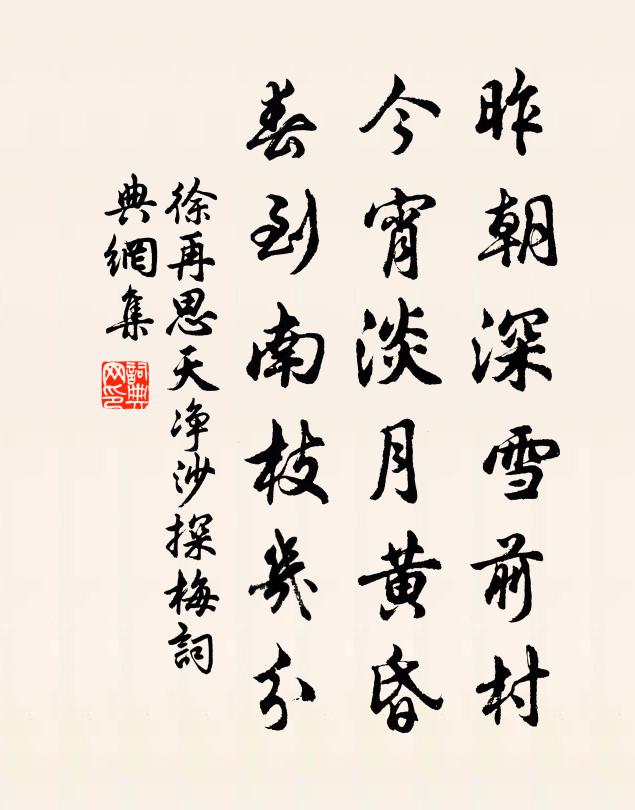 昨朝深雪前村
今宵淡月黄昏
春到南枝幾分
徐再思天净沙探梅詞
典網集
詞典网印